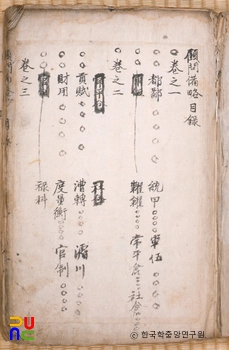 顧問備略目錄
卷之一
都鄙 統甲 軍伍
糶糴 常平倉 社倉
卷之二
貢賦 漕轉 濬川
財用 度量衡 官制
祿科
卷之三
ⓒ 한국학중앙연구원